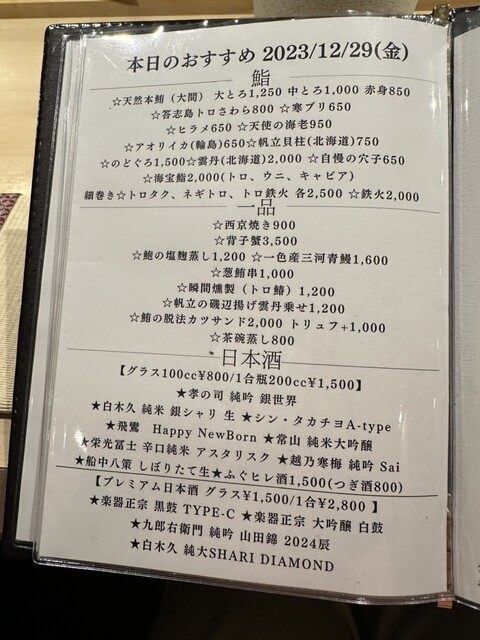 本日のおすすめ 2023/12/29(金)
鮨
☆天然本鮪（大間） 大とろ1,250 中とろ1,000 赤身850
☆答志島トロさわら800 ☆寒ブリ650
☆ヒラメ650 ☆天使の海老950
☆アオリイカ(輪島)650☆帆立貝柱(北海道)750
☆のどぐろ1,500☆雲丹(北海道)2,000 ☆自慢の穴子650
☆海宝鮨2,000(トロ、ウニ、キャビア)
細巻き☆トロタク、ネギトロ、トロ鉄火 各2,500 ☆鉄火2,000
一品
☆西京焼き900
☆背子蟹3,500
☆鮑の塩麹蒸し1,200 ☆一色産三河青鰻1,600
☆葱鮪串1,000
☆瞬間燻製（トロ鰆）1,200
☆帆立の磯辺揚げ雲丹乗せ1,200
☆鮪の脱法カツサンド2,000 トリュフ+1,000
☆茶碗蒸し800
日本酒
【グラス100cc¥800/1合瓶200cc¥1,500】
★孝の司 純吟 銀世界
★白木久 純米 銀シャリ 生 ★シン・タカチヨA-type
★飛鸞 Happy NewBorn ★常山 純米大吟醸
★栄光冨士 辛口純米 アスタリスク ★越乃寒梅 純吟 Sai
★船中八策 しぼりたて生★ふぐヒレ酒1,500(つぎ酒800)
【プレミアム日本酒 グラス¥1,500/1合¥2,800 】
★楽器正宗 黒鼓 TYPE-C ★楽器正宗 大吟醸 白鼓
★九郎右衛門 純吟 山田錦 2024辰
★白木久 純大SHARI DIAMOND